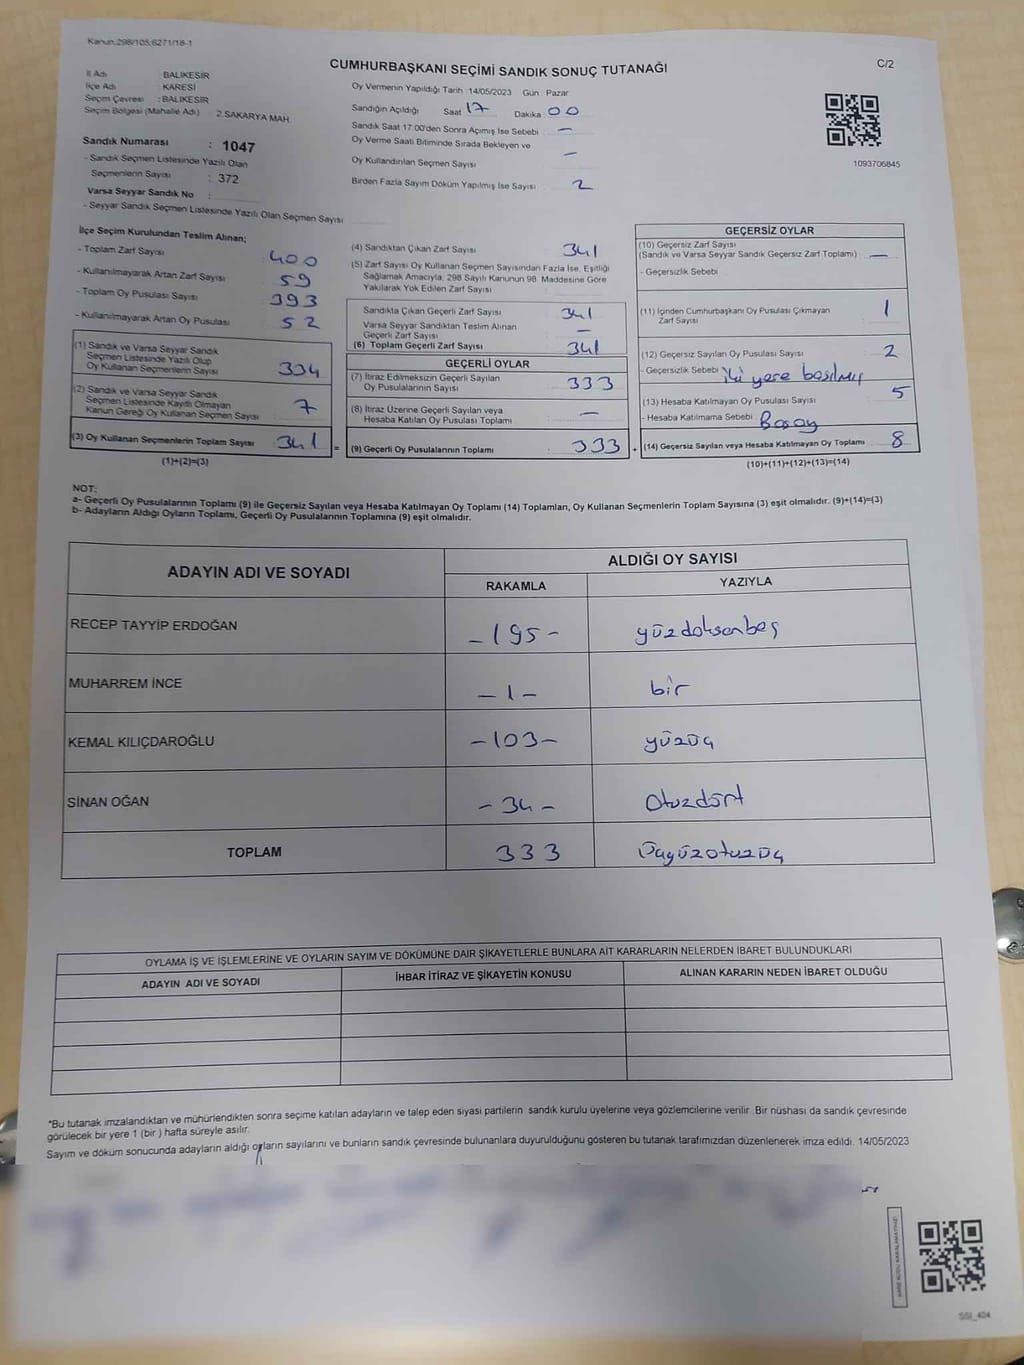 Kanun:298/105;6271/18-1
C/2
CUMHURBAŞKANI SEÇİMİ SANDIK SONUÇ TUTANAĞI
İl Adı : BALIKESİR
İlçe Adı : KARESİ
Seçim Çevresi : BALIKESİR
Seçim Bölgesi (Mahalle Adı) : 2 SAKARYA MAH.
Sandık Numarası : 1047
- Sandık Seçmen Listesinde Yazılı Olan
Seçmenlerin Sayısı : 372
Varsa Seyyar Sandık No :
- Seyyar Sandık Seçmen Listesinde Yazılı Olan Seçmen Sayısı
Oy Vermenin Yapıldığı Tarih :14/05/2023 Gün : Pazar
Sandığın Açıldığı Saat 17 Dakika : 00
Sandık Saat 17.00'den Sonra Açımış İse Sebebi : —
Oy Verme Saati Bitiminde Sırada Bekleyen ve
Oy Kullandırılan Seçmen Sayısı —
Birden Fazla Sayım Döküm Yapılmış İse Sayısı : 2
1093706845
İlçe Seçim Kurulundan Teslim Alınan;
- Toplam Zarf Sayısı : 400
- Kullanılmayarak Artan Zarf Sayısı : 59
- Toplam Oy Pusulası Sayısı : 393
- Kullanılmayarak Artan Oy Pusulası : 52
(1) Sandık ve Varsa Seyyar Sandık
Seçmen Listesinde Yazılı Olup
Oy Kullanan Seçmenlerin Sayısı : 334
(2) Sandık ve Varsa Seyyar Sandık
Seçmen Listesinde Kayıtlı Olmayan
Kanun Gereği Oy Kullanan Seçmen Sayısı : 7
(3) Oy Kullanan Seçmenlerin Toplam Sayısı : 341
(1)+(2)=(3)
(4) Sandıktan Çıkan Zarf Sayısı : 341
(5) Zarf Sayısı Oy Kullanan Seçmen Sayısından Fazla İse, Eşitliği
Sağlamak Amacıyla, 298 Sayılı Kanunun 98. Maddesine Göre
Yakılarak Yok Edilen Zarf Sayısı :
Sandıkta Çıkan Geçerli Zarf Sayısı : 341
Varsa Seyyar Sandıktan Teslim Alınan
Geçerli Zarf Sayısı : —
(6) Toplam Geçerli Zarf Sayısı : 341
GEÇERLİ OYLAR
(7) İtiraz Edilmeksizin Geçerli Sayılan
Oy Pusulalarının Sayısı : 333
(8) İtiraz Üzerine Geçerli Sayılan veya
Hesaba Katılan Oy Pusulaları Toplamı : —
= (9) Geçerli Oy Pusulalarının Toplamı : 333
GEÇERSİZ OYLAR
(10) Geçersiz Zarf Sayısı
(Sandık ve Varsa Seyyar Sandık Geçersiz Zarf Toplamı) : —
- Geçersizlik Sebebi
(11) İçinden Cumhurbaşkanı Oy Pusulası Çıkmayan
Zarf Sayısı 1
(12) Geçersiz Sayılan Oy Pusulası Sayısı : 2
- Geçersizlik Sebebi iki yere basılmış
(13) Hesaba Katılmayan Oy Pusulası Sayısı : 5
- Hesaba Katılmama Sebebi Basay
+ (14) Geçersiz Sayılan veya Hesaba Katılmayan Oy Toplamı : 8
(10)+(11)+(12)+(13)=(14)
NOT:
a- Geçerli Oy Pusulalarının Toplamı (9) ile Geçersiz Sayılan veya Hesaba Katılmayan Oy Toplamı (14) Toplamları, Oy Kullanan Seçmenlerin Toplam Sayısına (3) eşit olmalıdır. (9)+(14)=(3)
b- Adayların Aldığı Oyların Toplamı, Geçerli Oy Pusulalarının Toplamına (9) eşit olmalıdır.
ADAYIN ADI VE SOYADI ALDIĞI OY SAYISI
RAKAMLA YAZIYLA
RECEP TAYYİP ERDOĞAN -195- yüzdoksanbeş
MUHARREM İNCE -1- bir
KEMAL KILIÇDAROĞLU -103- yüzüç
SİNAN OĞAN -34- Otuzdört
TOPLAM 333 Üçyüzotuzüç
OYLAMA İŞ VE İŞLEMLERİNE VE OYLARIN SAYIM VE DÖKÜMÜNE DAİR ŞİKAYETLERLE BUNLARA AİT KARARLARIN NELERDEN İBARET BULUNDUKLARI
ADAYIN ADI VE SOYADI İHBAR İTİRAZ VE ŞİKAYETİN KONUSU ALINAN KARARIN NEDEN İBARET OLDUĞU
*Bu tutanak imzalandıktan ve mühürlendikten sonra seçime katılan adayların ve talep eden siyasi partilerin sandık kurulu üyelerine veya gözlemcilerine verilir. Bir nüshası da sandık çevresinde
görülecek bir yere 1 (bir) hafta süreyle asılır.
Sayım ve döküm sonucunda adayların aldığı oyların sayılarını ve bunların sandık çevresinde bulunanlara duyurulduğunu gösteren bu tutanak tarafımızdan düzenlenerek imza edildi. 14/05/2023
SSI_404